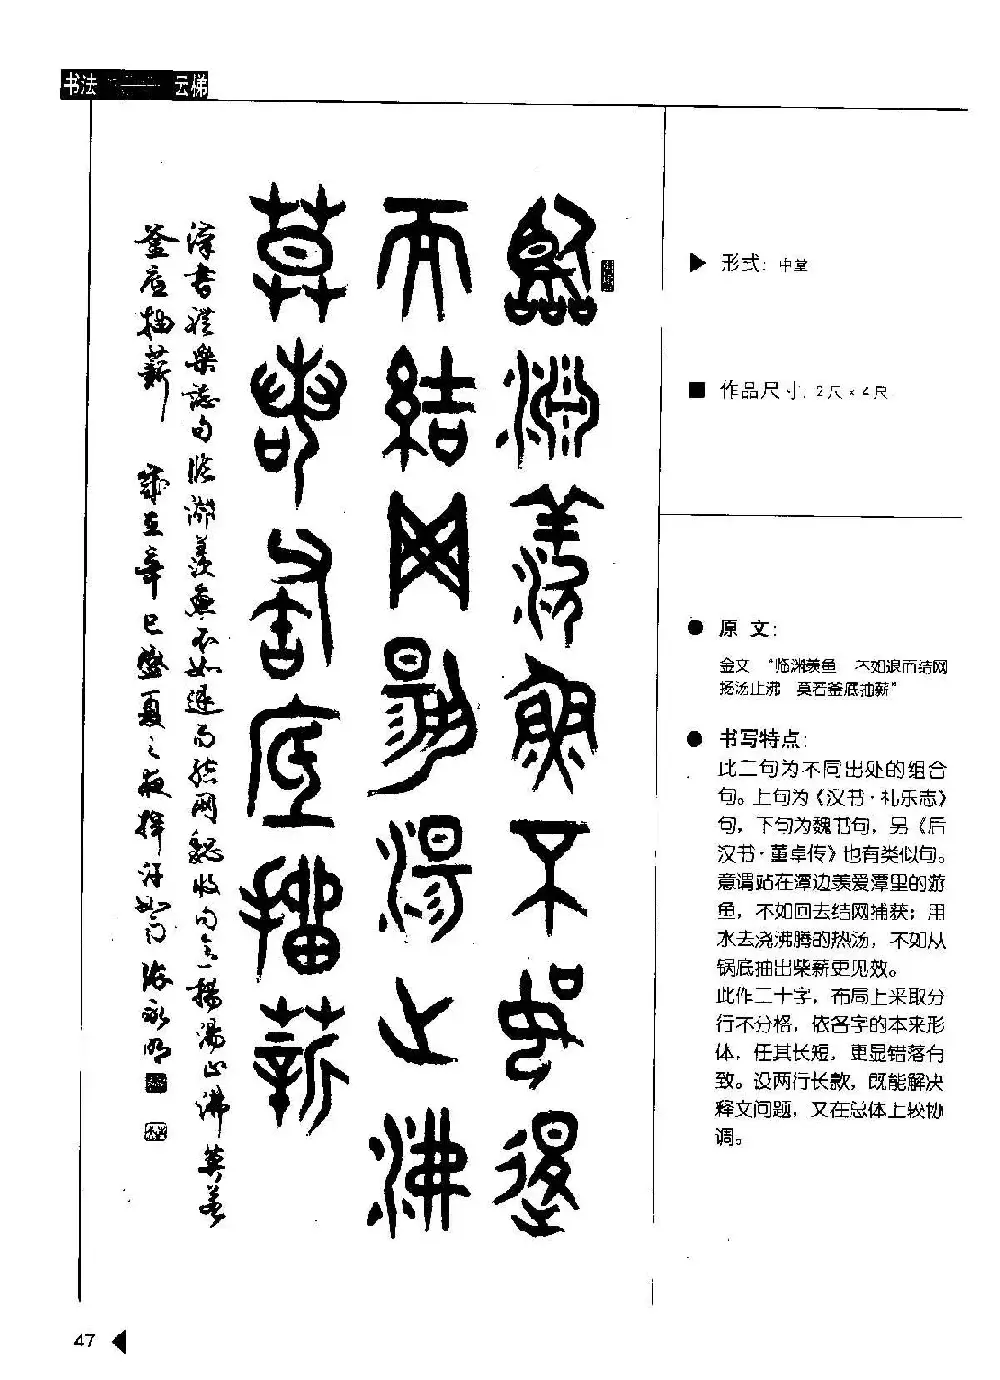 书法 云梯
臨淵羨魚不如退
而結网揚湯止沸
莫若釜底搐薪
漢書禮樂志句臨渊羨魚不如退而結网魏收句今揚湯止沸莫若
釜底抽薪 歲在辛巳盛夏之夜揮汗 永明
▶ 形式: 中堂
■ 作品尺寸: 2尺×4尺
● 原 文:
金文 “临渊羡鱼 不如退而结网
扬汤止沸 莫若釜底抽薪”
● 书写特点:
此二句为不同出处的组合
句。上句为《汉书·礼乐志》
句，下句为魏书句，另《后
汉书·董卓传》也有类似句。
意谓站在潭边羡爱潭里的游
鱼，不如回去结网捕获；用
水去浇沸腾的热汤，不如从
锅底抽出柴薪更见效。
此作二十字，布局上采取分
行不分格，依各字的本来形
体，任其长短，更显错落有
致。设两行长款，既能解决
释文问题，又在总体上较协
调。
47